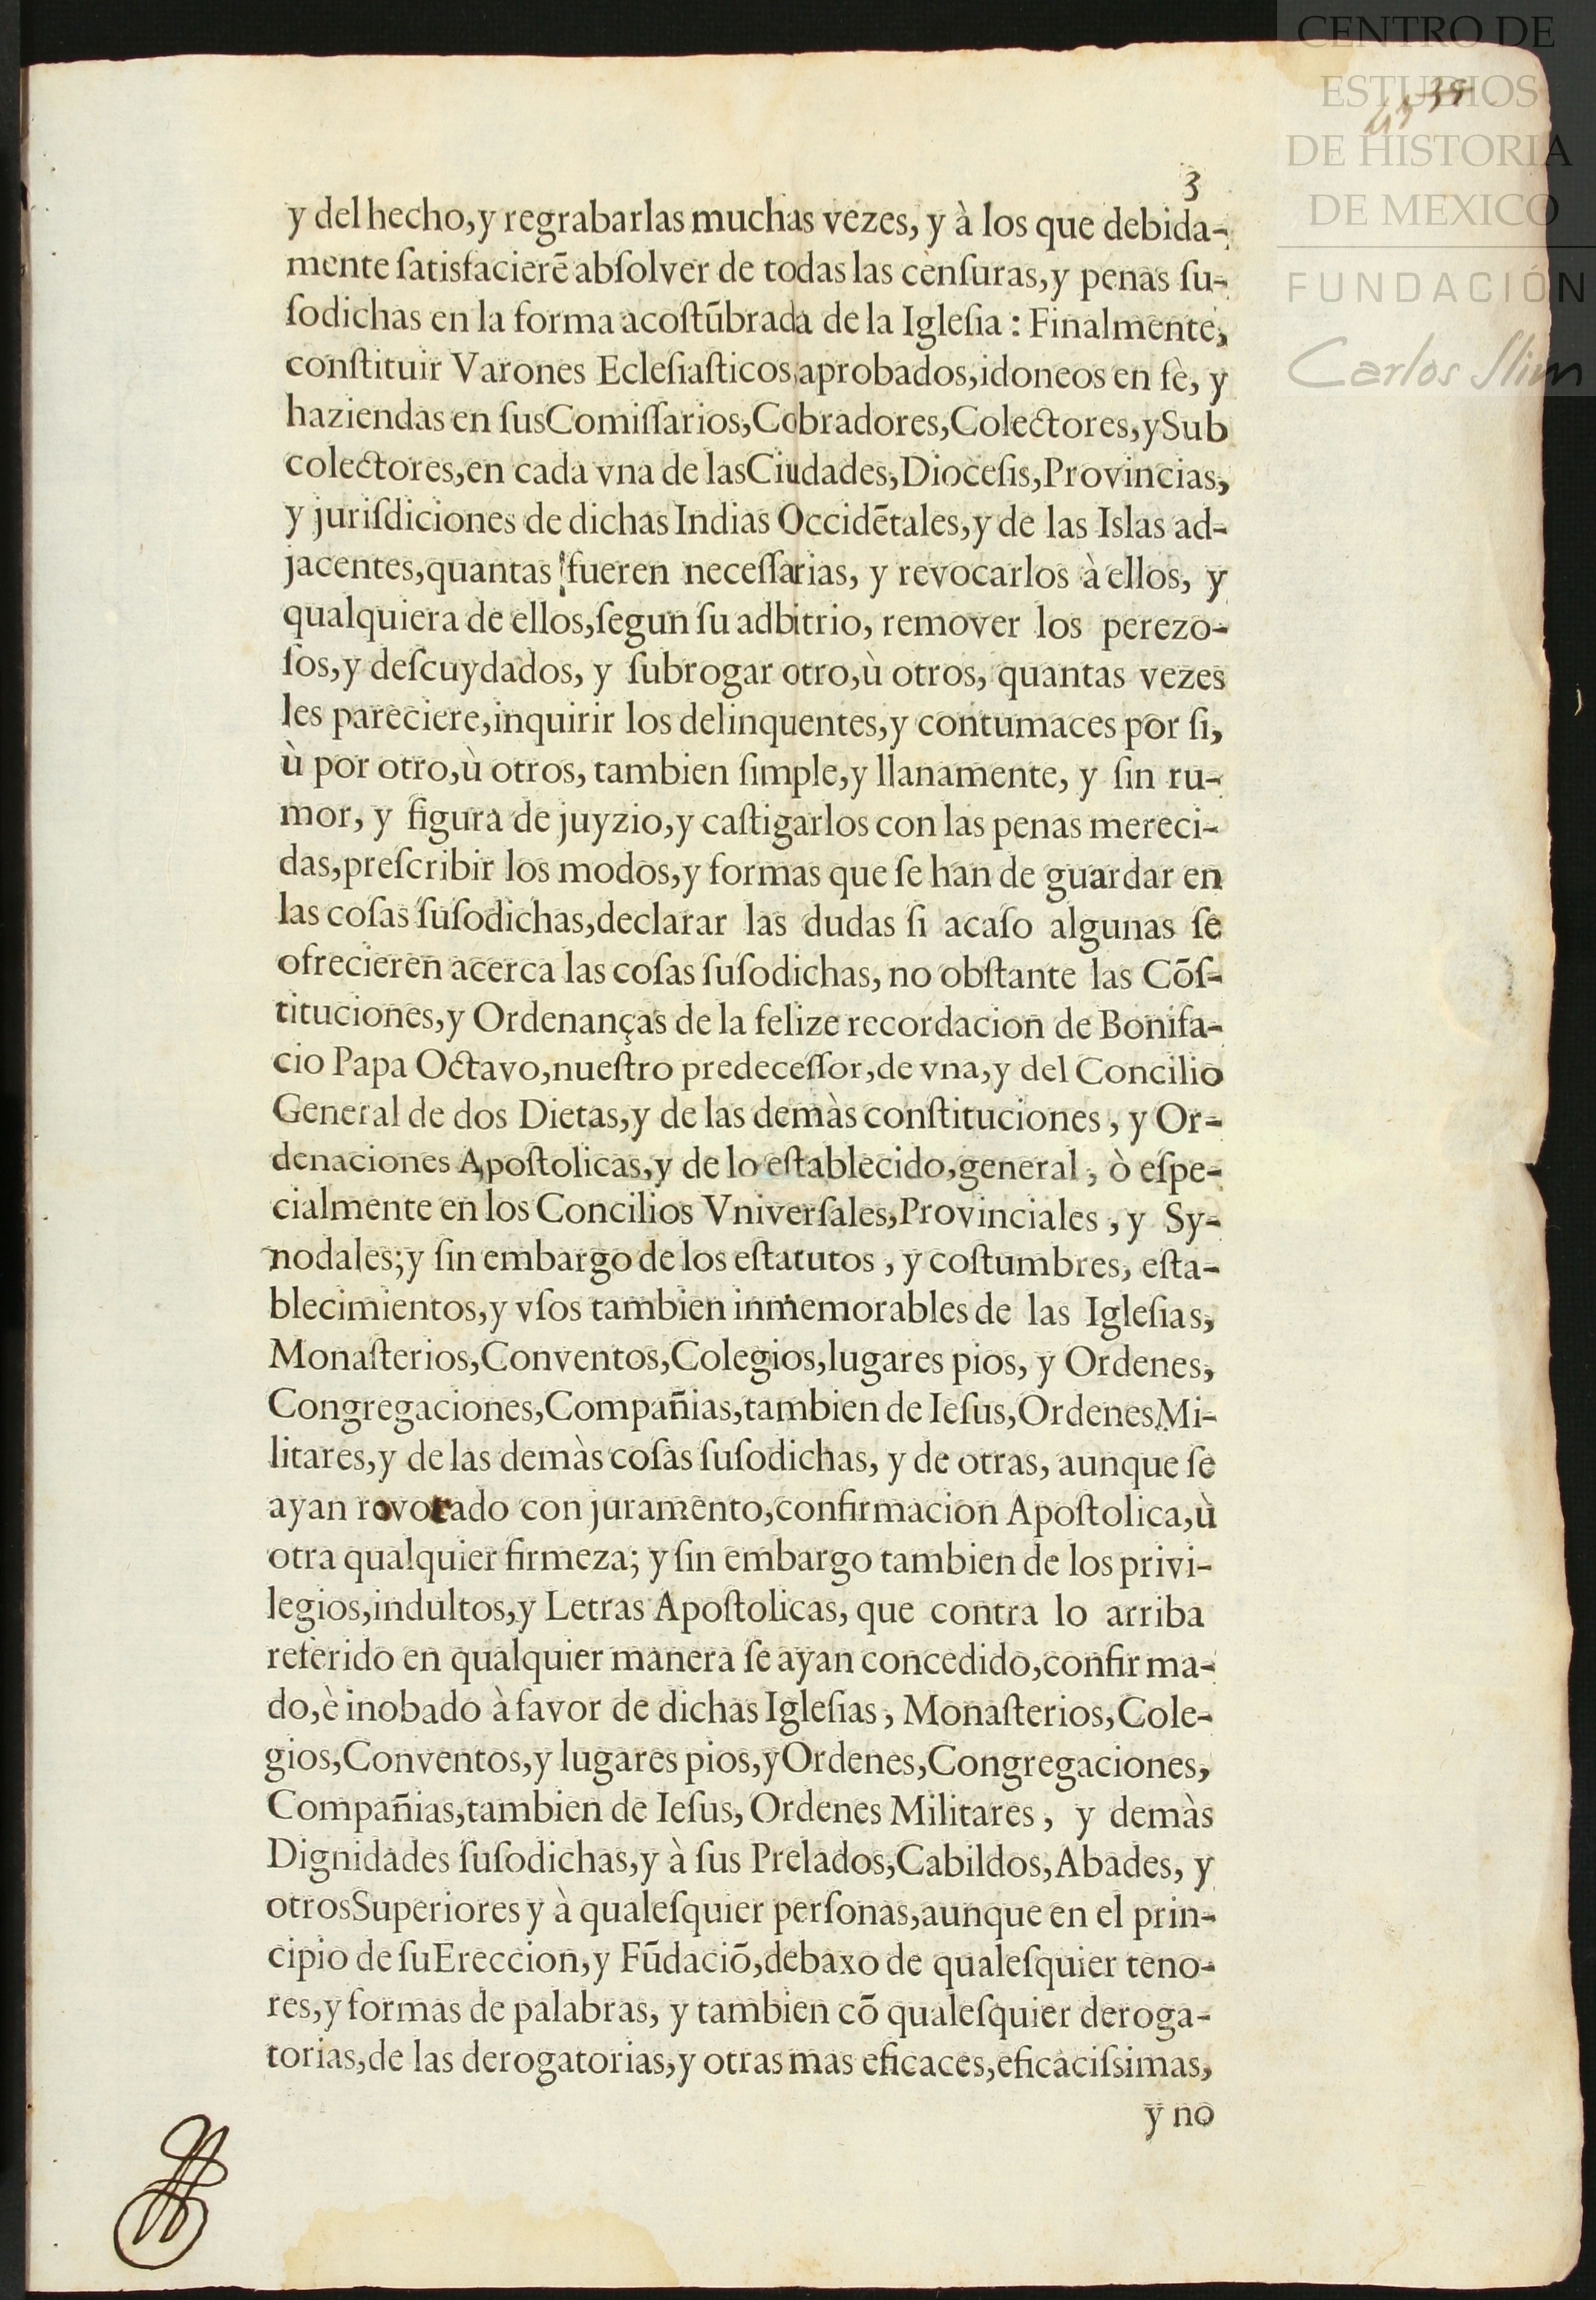 CENTRO DE
ESTUDIOS
DE HISTORIA
DE MEXICO
FUNDACIÓN
Carlos Slim
3
y del hecho,y regrabarlas muchas vezes, y à los que debida-
mente ſatisfacierẽ abſolver de todas las cenſuras,y penas ſu-
ſodichas en la forma acoſtũbrada de la Igleſia : Finalmente,
conſtituir Varones Ecleſiaſticos,aprobados,idoneos en fè, y
haziendas en ſusComiſſarios,Cobradores,Colectores,ySub
colectores,en cada vna de lasCiudades,Dioceſis,Provincias,
y juriſdiciones de dichas Indias Occidẽtales,y de las Islas ad-
jacentes,quantas fueren neceſſarias, y revocarlos à ellos, y
qualquiera de ellos,ſegun ſu adbitrio, remover los perezo-
ſos,y deſcuydados, y ſubrogar otro,ù otros, quantas vezes
les pareciere,inquirir los delinquentes,y contumaces por ſi,
ù por otro,ù otros, tambien ſimple,y llanamente, y ſin ru-
mor, y figura de juyzio,y caſtigarlos con las penas mereci-
das,preſcribir los modos,y formas que ſe han de guardar en
las coſas ſuſodichas,declarar las dudas ſi acaſo algunas ſe
ofrecieren acerca las coſas ſuſodichas, no obſtante las Cõſ-
tituciones,y Ordenanças de la felize recordacion de Bonifa-
cio Papa Octavo,nueſtro predeceſſor,de vna,y del Concilio
General de dos Dietas,y de las demàs conſtituciones, y Or-
denaciones Apoſtolicas,y de lo eſtablecido,general, ò eſpe-
cialmente en los Concilios Vniverſales,Provinciales, y Sy-
nodales;y ſin embargo de los eſtatutos, y coſtumbres, eſta-
blecimientos,y vſos tambien inmemorables de las Igleſias,
Monaſterios,Conventos,Colegios,lugares pios, y Ordenes,
Congregaciones,Compañias,tambien de Ieſus,OrdenesMi-
litares,y de las demàs coſas ſuſodichas, y de otras, aunque ſe
ayan rovorado con juramento,confirmacion Apoſtolica,ù
otra qualquier firmeza; y ſin embargo tambien de los privi-
legios,indultos,y Letras Apoſtolicas, que contra lo arriba
referido en qualquier manera ſe ayan concedido,confirma-
do,è inobado à favor de dichas Igleſias, Monaſterios,Cole-
gios,Conventos,y lugares pios,yOrdenes,Congregaciones,
Compañias,tambien de Ieſus, Ordenes Militares, y demàs
Dignidades ſuſodichas,y à ſus Prelados,Cabildos,Abades, y
otrosSuperiores y à qualeſquier perſonas,aunque en el prin-
cipio de ſuEreccion,y Fũdaciõ,debaxo de qualeſquier teno-
res,y formas de palabras, y tambien cõ qualeſquier deroga-
torias,de las derogatorias,y otras mas eficaces,eficaciſsimas,
y no